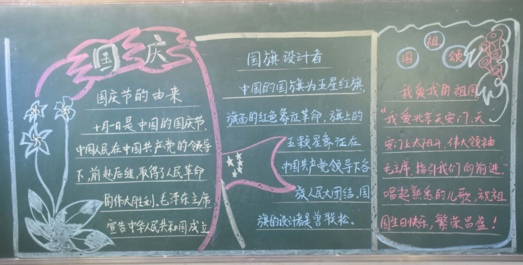 国庆
国庆节的由来
十月一日是中国的国庆节，
中国人民在中国共产党的领导
下，前赴后继，取得人民革命
的伟大胜利，毛泽东主席
宣告中华人民共和国成立
国旗设计者
中国的国旗为五星红旗，
旗面的红色象征革命，旗上的
五颗星象征在
中国共产党领导下各
族人民大团结，国
旗的设计者是曾联松。
祖国颂
我爱我的祖国
“我爱北京天安门，天
安门上太阳升，伟大领袖
毛主席，指引我们向前进”
唱起熟悉的儿歌，祝祖
国生日快乐，繁荣昌盛！